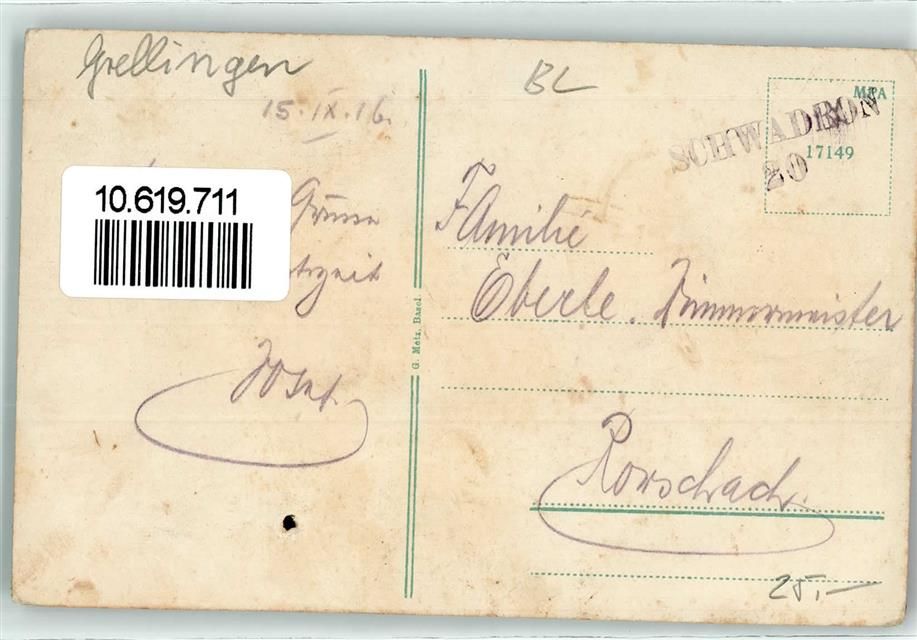 Grellingen
15.IX.16.
10.619.711
Josef
G. Metz, Basel.
BL
MPA
SCHWADRON
17149
20
Familie
Eberle. Zimmermeister
Rorschach.
25.-